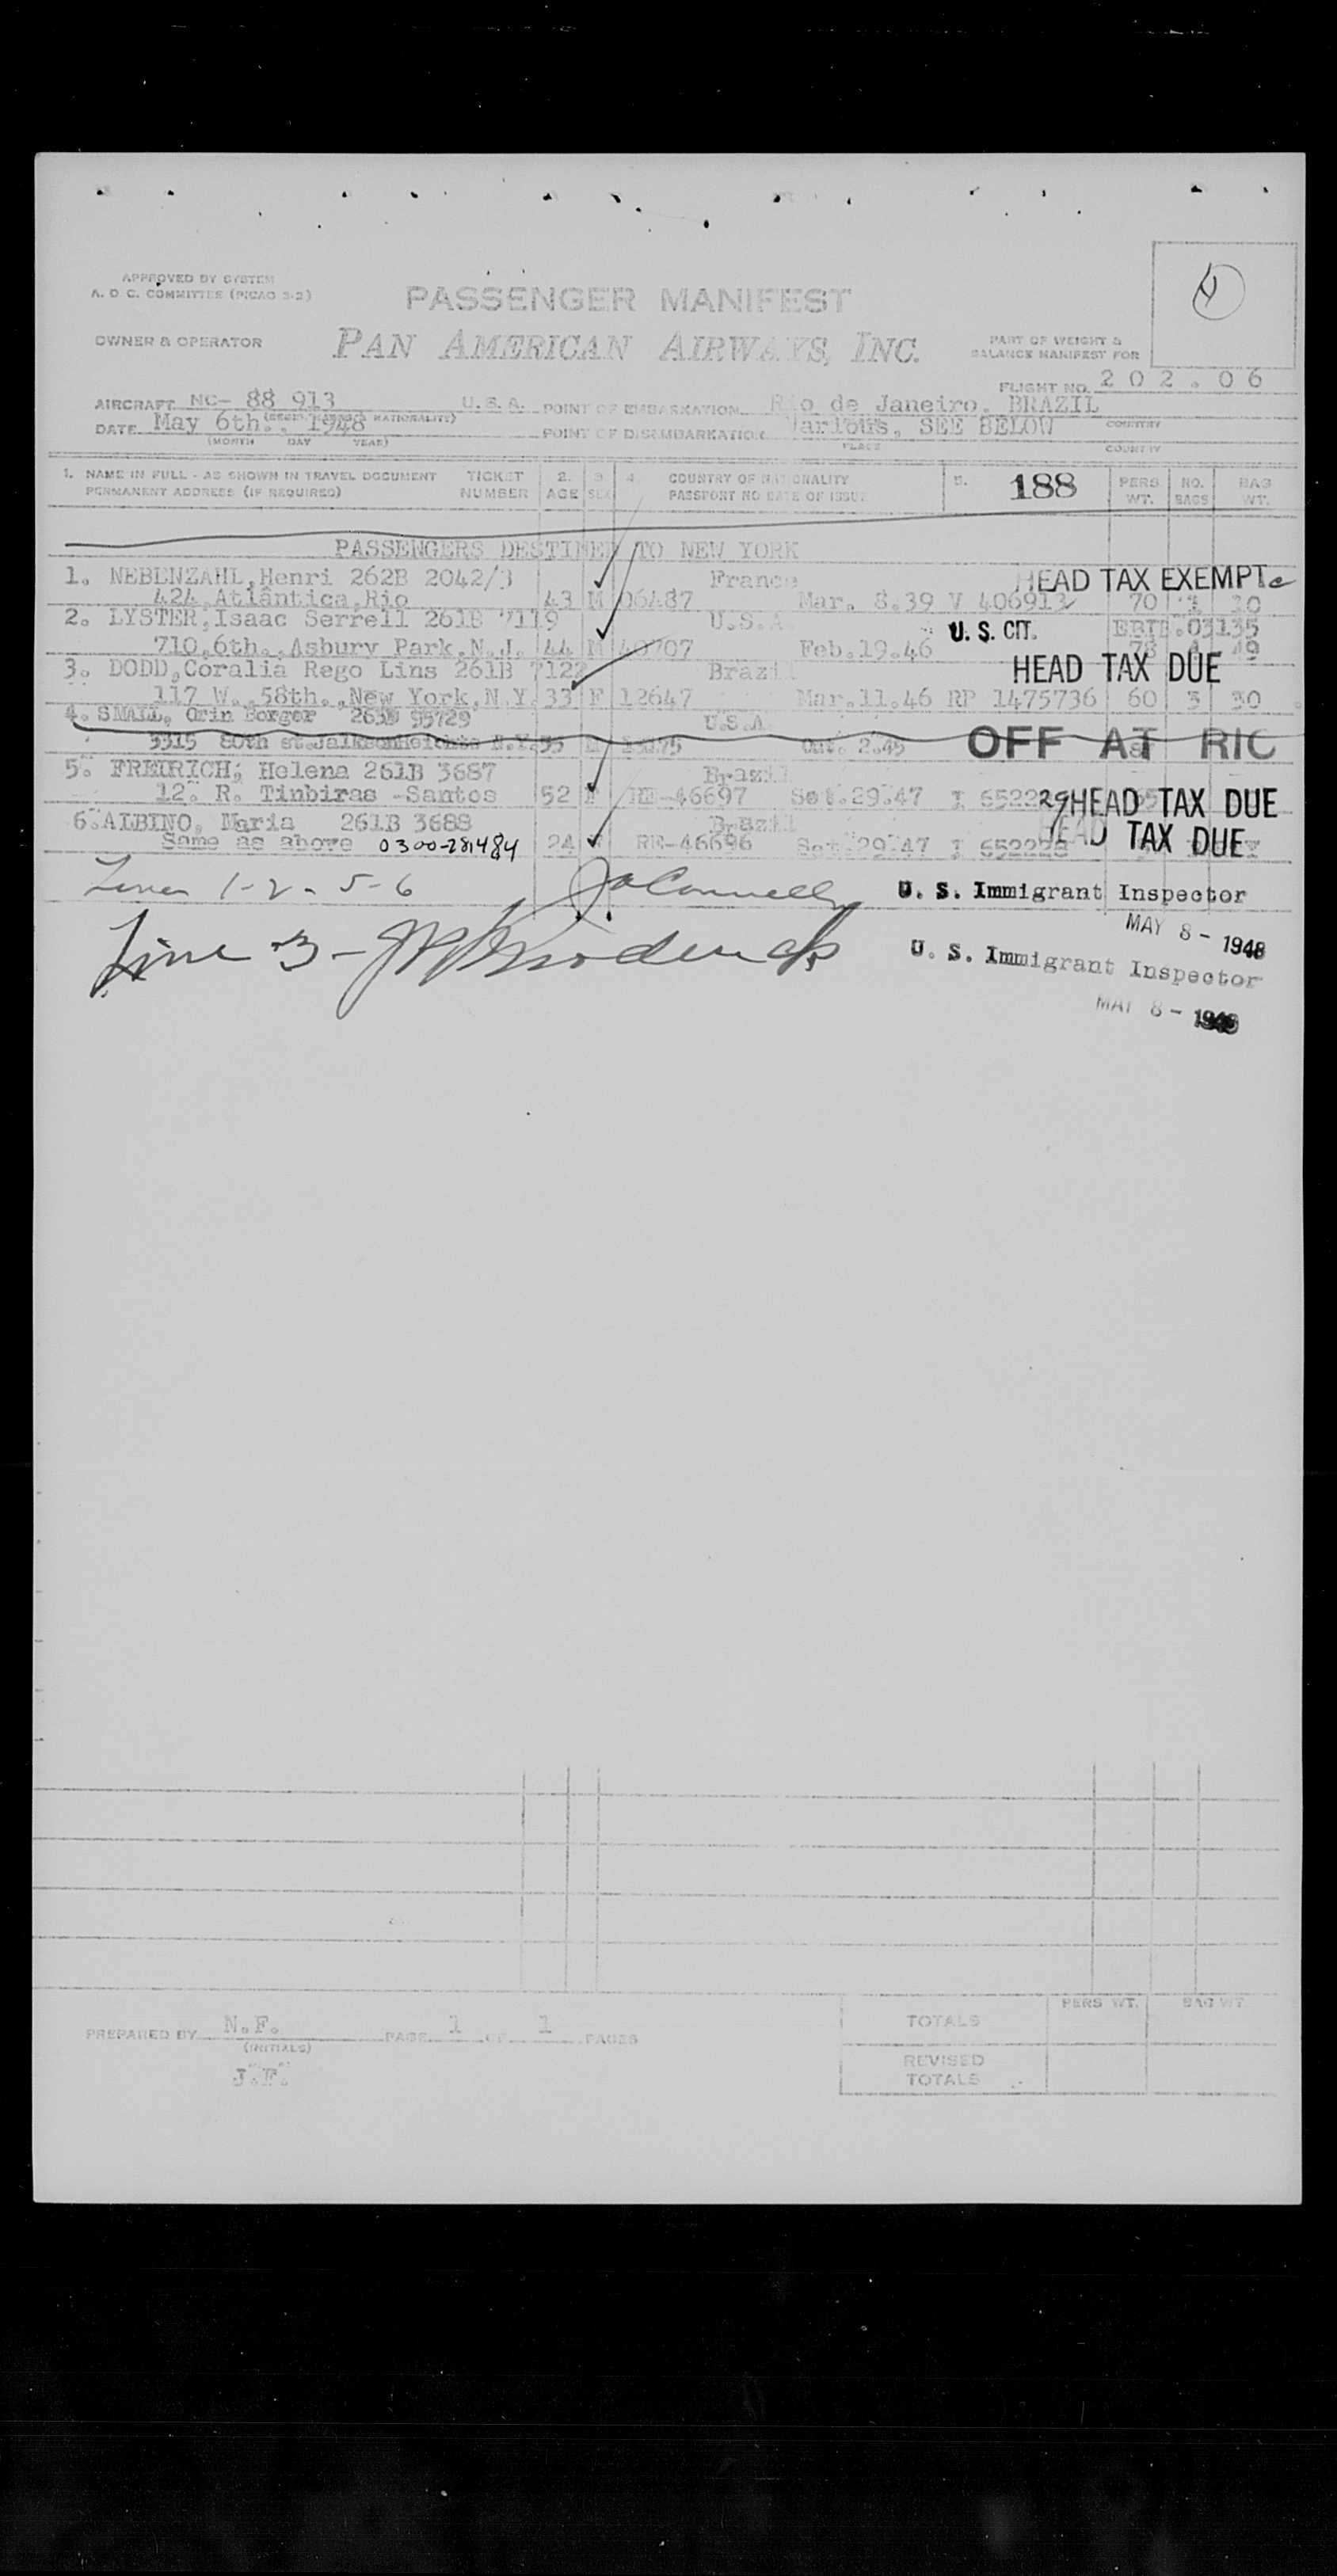 APPROVED BY SYSTEM
A. O. C. COMMITTEE (PICAO 3-2)
PASSENGER MANIFEST
OWNER & OPERATOR PAN AMERICAN AIRWAYS, INC.
PART OF WEIGHT &
BALANCE MANIFEST FOR
FLIGHT NO. 202.06
AIRCRAFT NC- 88 913 U.S.A. POINT OF EMBARKATION Rio de Janeiro, BRAZIL
DATE May 6th., 1948 POINT OF DISEMBARKATION Various, SEE BELOW
(MONTH DAY YEAR) PLACE COUNTRY
1. NAME IN FULL - AS SHOWN IN TRAVEL DOCUMENT TICKET 2. 3. 4. COUNTRY OF NATIONALITY 5. 188 PERS. NO. BAG
PERMANENT ADDRESS (IF REQUIRED) NUMBER AGE SEX PASSPORT NO DATE OF ISSUE WT. BAGS WT.
PASSENGERS DESTINED TO NEW YORK
1. NEBENZAHL, Henri 262B 2042/3 France HEAD TAX EXEMPT
424, Atlântica, Rio 43 M 06487 Mar. 8.39 V 406913 70
2. LYSTER, Isaac Serrell 261B 7119 U.S.A. U.S. CIT.
710, 6th., Asbury Park, N.J. 44 M 40707 Feb.19.46 78 49
3. DODD, Coralia Rego Lins 261B 7122 Brazil HEAD TAX DUE
117 W., 58th., New York, N.Y. 33 F 12647 Mar.11.46 RP 1475736 60 3 30
4. SMALL, Orin Borger 263B 95729 U.S.A.
3315 80th st. N.Y. 55 M 2.45 OFF AT RIO
5. FREIRICH, Helena 261B 3687 Brazil
12. R. Tinbiras -Santos 52 F RE-46697 Set.29.47 I 652229 HEAD TAX DUE
6. ALBINO, Maria 261B 3688 Brazil
Same as above 0300-281484 24 RE-46696 Set.29.47 I 652228 HEAD TAX DUE
Lines 1-2-5-6 U. S. Immigrant Inspector
MAY 8 - 1948
Line 3 - U. S. Immigrant Inspector
MAY 8 - 1948
PREPARED BY N.F. PAGE 1 OF 1 PAGES
(INITIALS)
J.F.
PERS WT. BAG WT.
TOTALS
REVISED
TOTALS